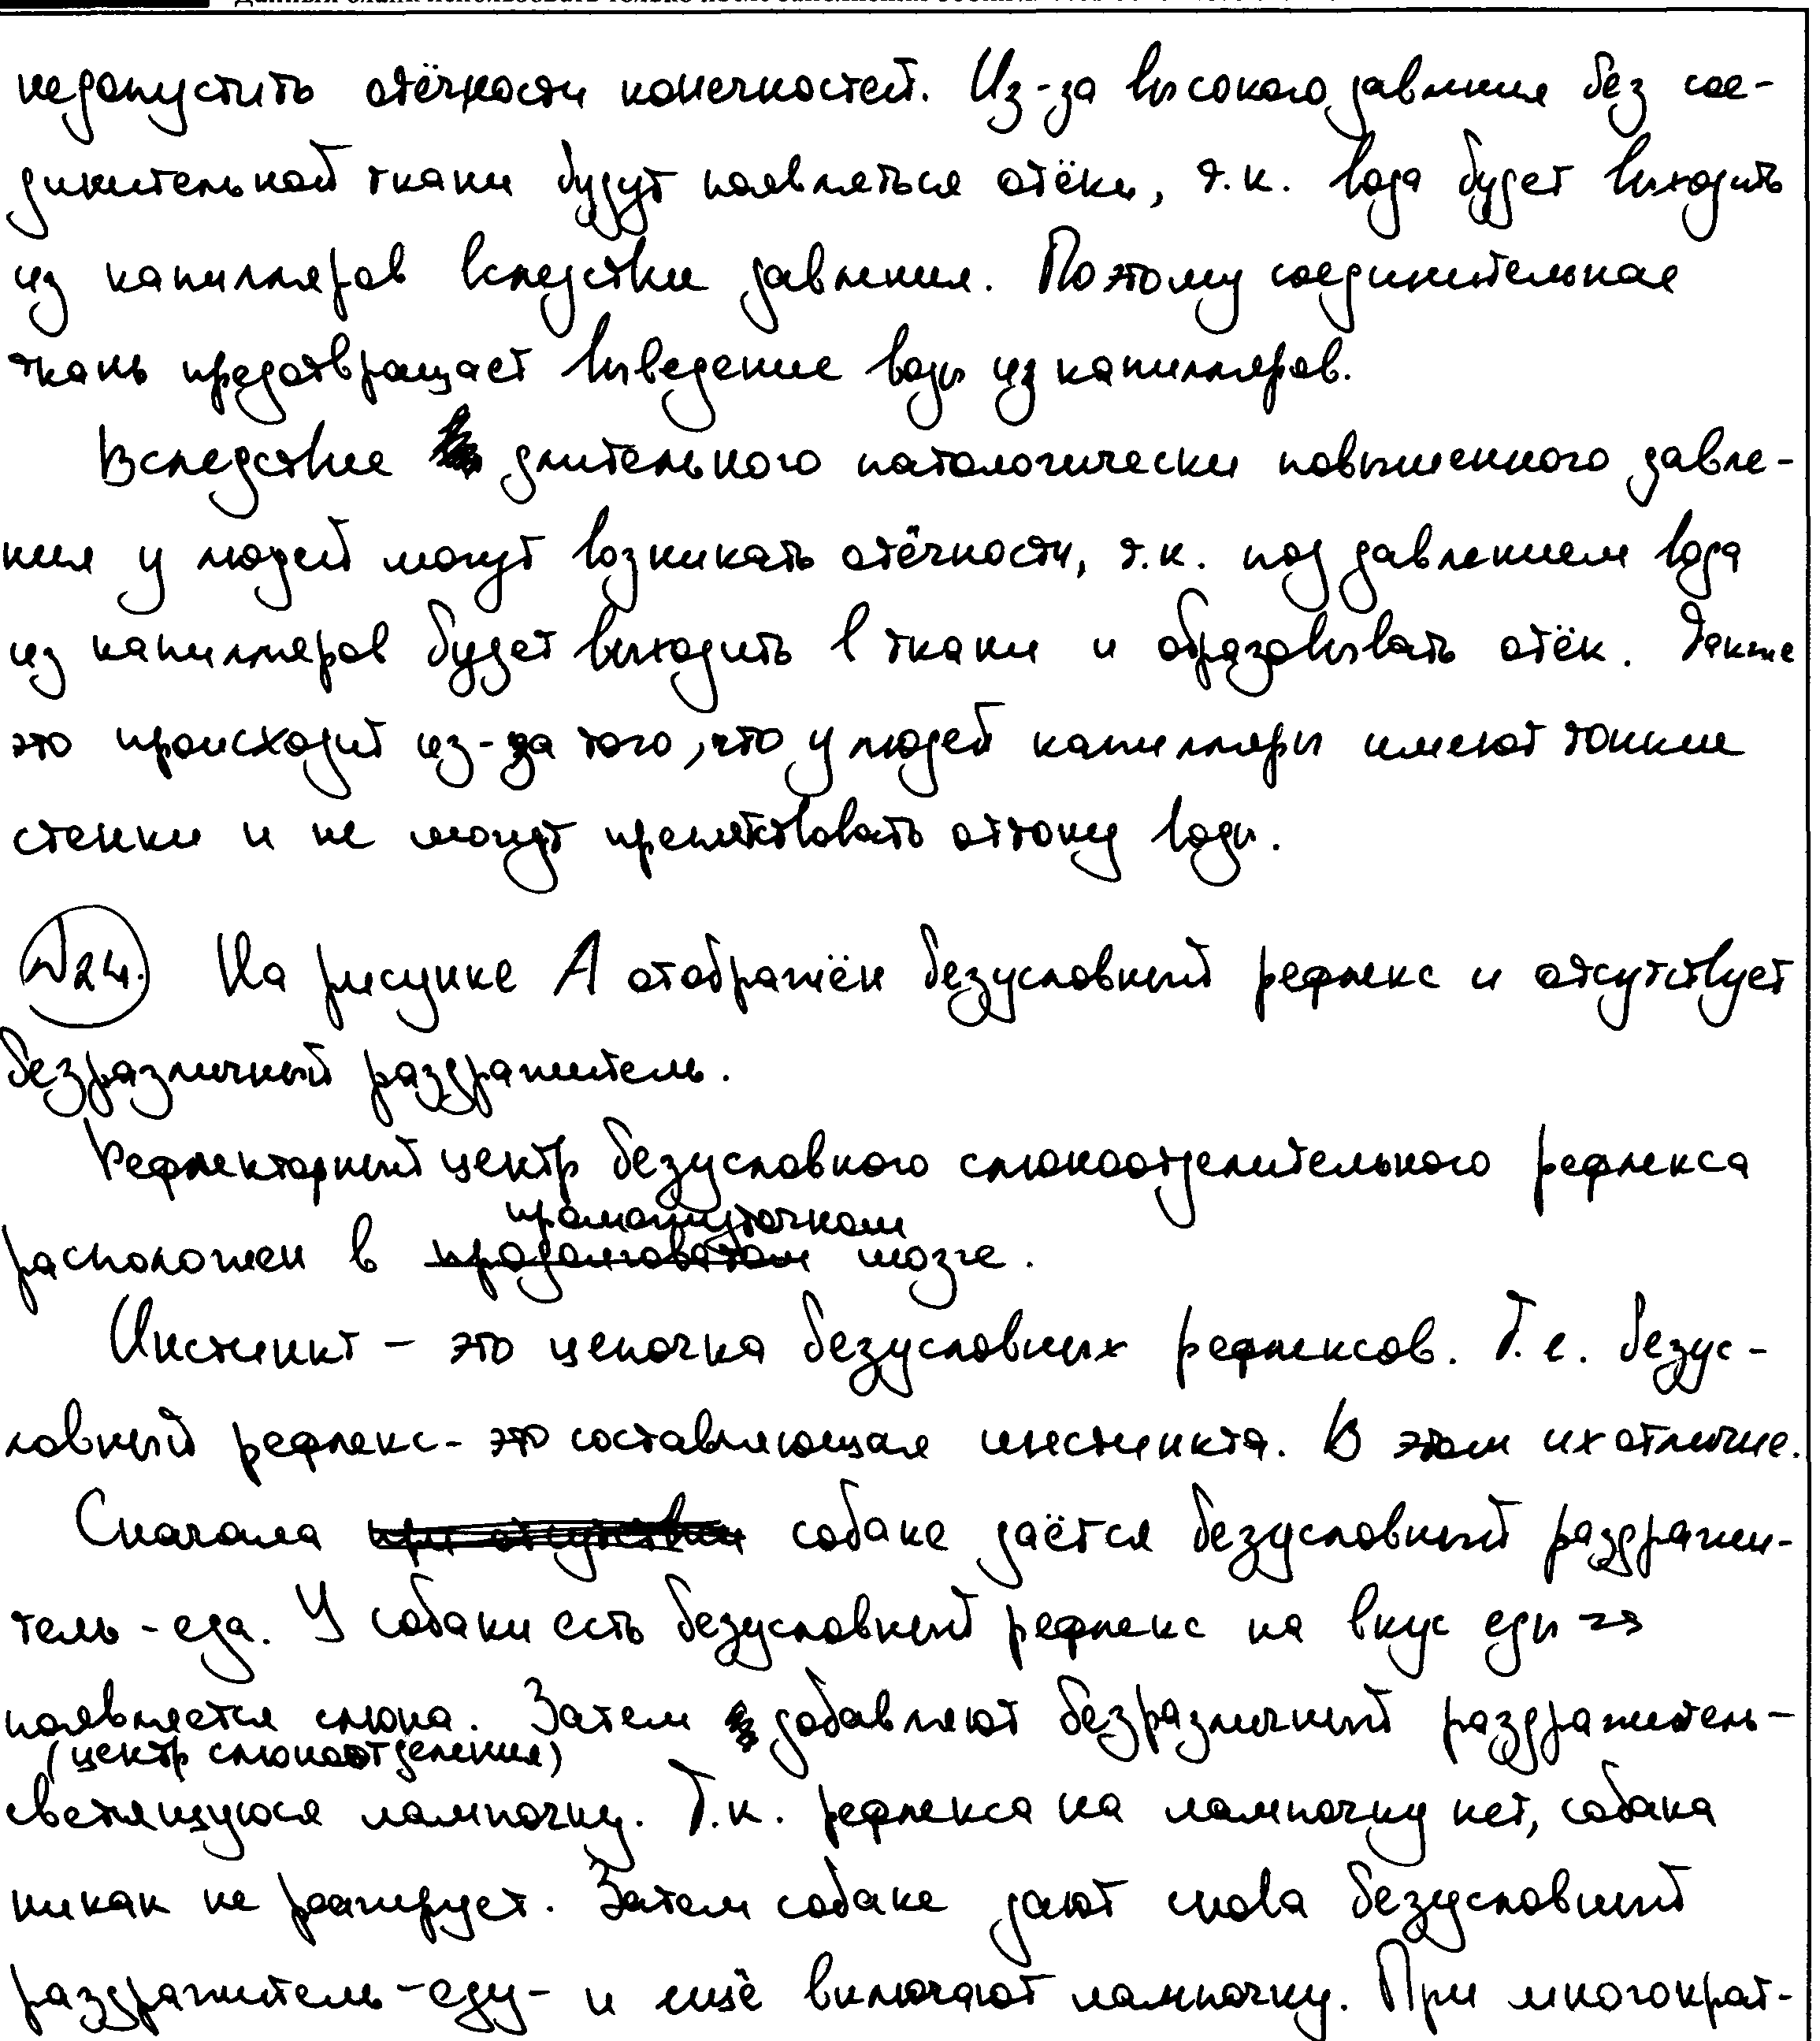 недопустить отёчности конечностей. Из-за высокого давления без сое-
динительной ткани будут появляться отёки, т.к. вода будет выходить
из капилляров вследствии давления. Поэтому соединительная
ткань предотвращает выведение воды из капилляров.
Вследствие длительного патологически повышенного давле-
ния у людей могут возникать отёчности, т.к. под давлением вода
из капилляров будет выходить в ткани и образовывать отёк. Также
это происходит из-за того, что у людей капилляры имеют тонкие
стенки и не могут препятствовать оттоку воды.
№24. На рисунке А отображён безусловный рефлекс и отсутствует
безразличный раздражитель.
Рефлекторный центр безусловного слюноотделительного рефлекса
промежуточном
расположен в продолговатом мозге.
Инстинкт – это цепочка безусловных рефлексов. Т.е. безус-
ловный рефлекс - это составляющая инстинкта. В этом их отличие.
Сначала при отсутствии собаке даётся безусловный раздражи-
тель - еда. У собаки есть безусловный рефлекс на вкус еды =>
появляется слюна. Затем добавляют безразличный раздражитель -
(центр слюноотделения)
светящуюся лампочку. Т.к. рефлекса на лампочку нет, собака
никак не реагирует. Затем собаке дают снова безусловный
раздражитель - еду - и ещё включают лампочку. При многократ-